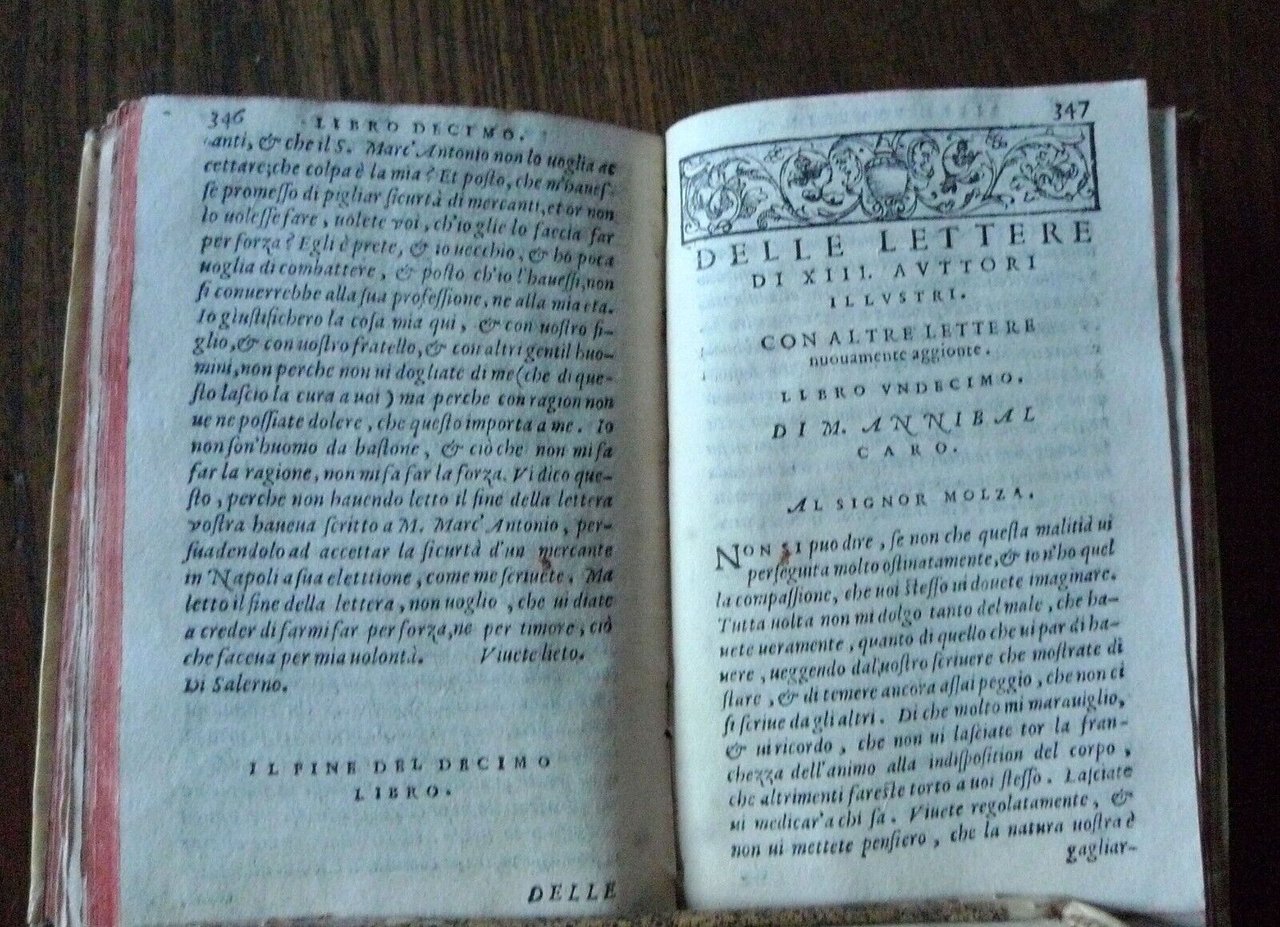 346
LIBRO DECIMO.
canti, & che il S. Marc'Antonio non lo uoglia ac
cettare; che colpa è la mia? Et posto, che m'haues-
se promesso di pigliar sicurtà di mercanti, et or non
lo uolesse fare, uolete voi, ch'io glie lo faccia far
per forza? Egli è prete, & io uecchio, & hò poca
uoglia di combattere, & posto ch'io l'hauessi, non
si conuerrebbe alla sua professione, ne alla mia eta.
Io giustifichero la cosa mia qui, & con uostro fi-
glio, & con uostro fratello, & con altri gentil'huo-
mini, non perche non ui dogliate di me (che di que-
sto lascio la cura a uoi) ma perche con ragion non
ue ne possiate dolere, che questo importa a me. Io
non son'huomo da bastone, & ciò che non mi fa
far la ragione, non mi fa far la forza. Vi dico que-
sto, perche non hauendo letto il fine della lettera
vostra haueua scritto a M. Marc'Antonio, per-
suadendolo ad accettar la sicurtà d'un mercante
in Napoli a sua elettione, come me scriuete. Ma
letto il fine della lettera, non uoglio, che ui diate
a creder di farmi far per forza, ne per timore, ciò
che faceua per mia uolontà. Viuete lieto.
Di Salerno.
IL FINE DEL DECIMO
LIBRO.
DELLE
347
DELLE LETTERE
DI XIII. AVTTORI
ILLVSTRI.
CON ALTRE LETTERE
nuouamente aggionte.
LIBRO VNDECIMO.
DI M. ANNIBAL
CARO.
AL SIGNOR MOLZA.
NON SI puo dire, se non che questa malitia ui
perseguita molto ostinatamente, & io n'ho quel
la compassione, che uoi stesso ui douete imaginare.
Tutta uolta non mi dolgo tanto del male, che ha-
uete ueramente, quanto di quello che ui par di ha-
uere, ueggendo dal uostro scriuere che mostrate di
stare, & di temere ancora assai peggio, che non ci
si scriue da gli altri. Di che molto mi marauiglio,
& ui ricordo, che non ui lasciate tor la fran-
chezza dell'animo alla indisposition del corpo,
che altrimenti fareste torto a uoi stesso. Lasciate
ui medicar'a chi sa. Viuete regolatamente, &
non ui mettete pensiero, che la natura uostra è
gagliar-